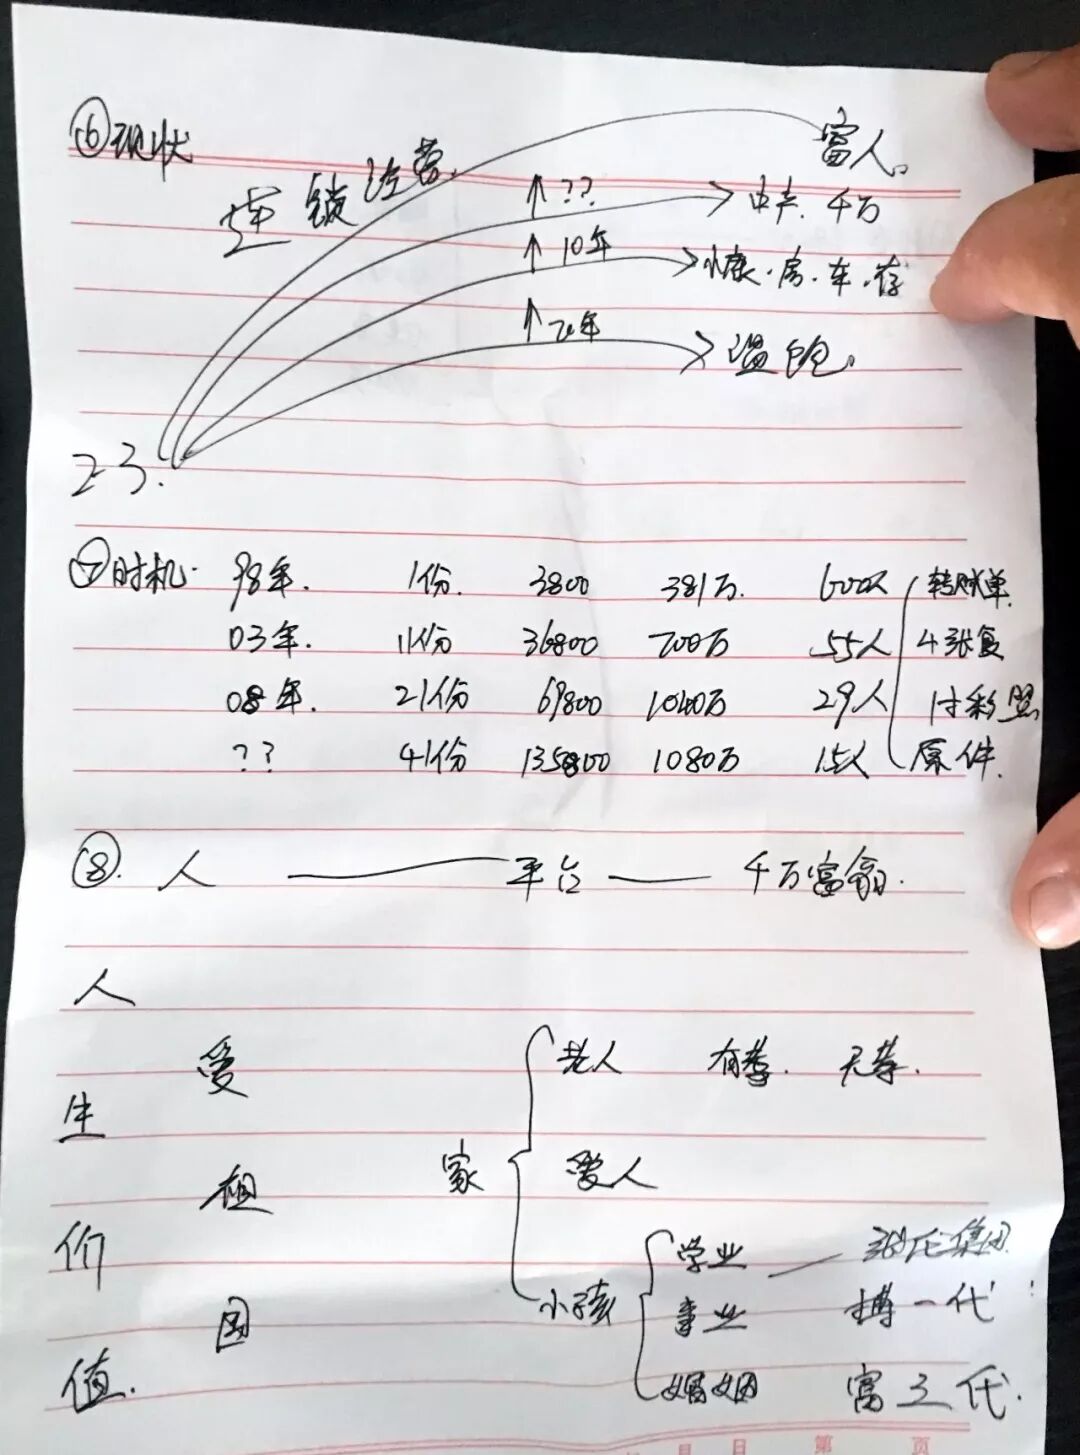 ⑥现状
连锁经营.
富人.
↑ ?? 中产. 千万
↑ 10年 小康·房·车·存
↑ 20年 温饱.
2-3.
⑦时机· 98年. 1份. 3800 381万. 600人 转账单.
03年. 11份 36800 700万 55人 4张复
08年. 21份 69800 1040万 29人 付彩照
?? 41份 135800 1080万 15人 原件.
⑧. 人 —— 平台 —— 千万富翁.
人生价值.
爱祖国
家
老人 有尊. 无尊.
爱人
小孩
学业 — 张氏集团.
事业 搏一代
婚姻 富三代.
月 日 第 页